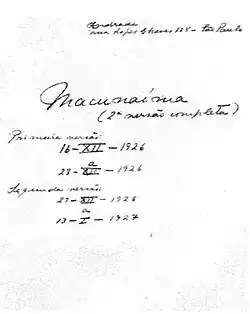 Andrade
rua Lopes Chaves 108 - São Paulo
Macunaíma
(2ª versão completa)
Primeira versão
16-XII-1926
a
23-XII-1926
Segunda versão
27-XII-1926
a
13-I-1927